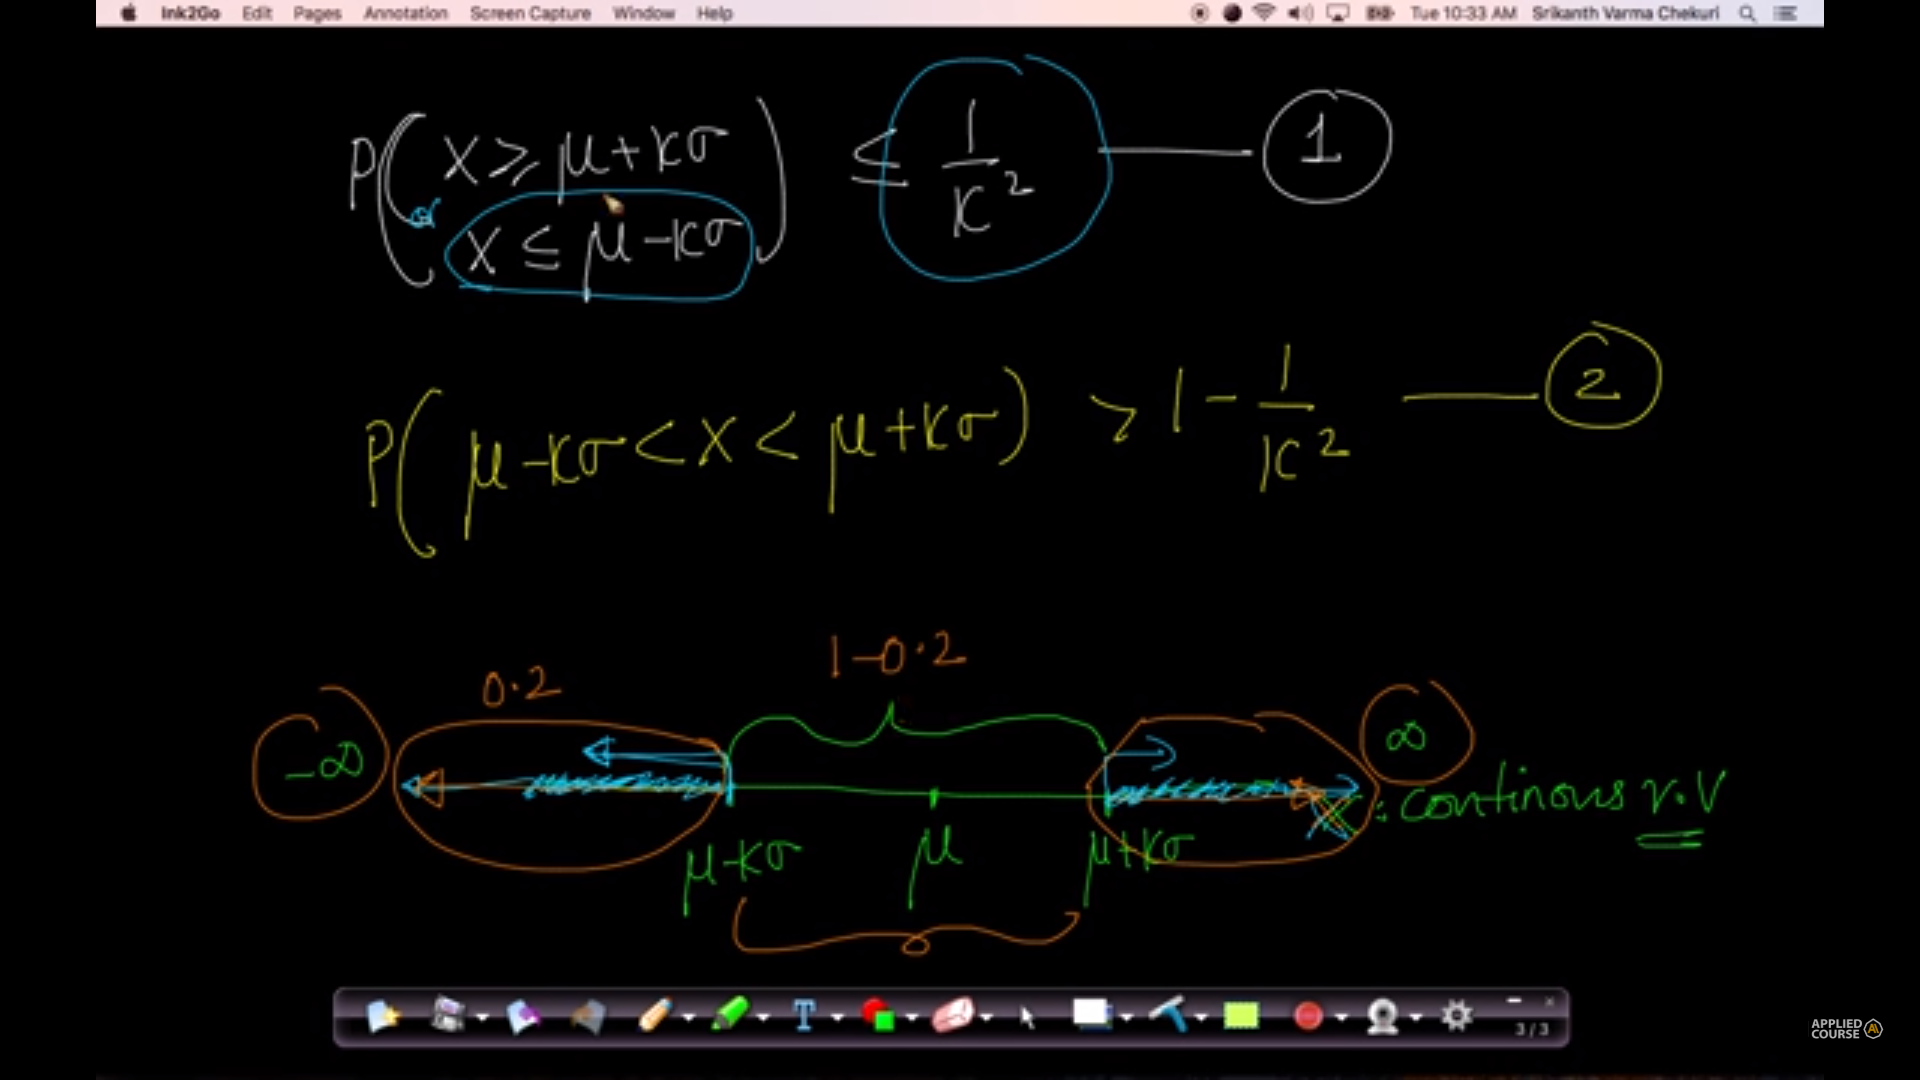 Ink2Go Edit Pages Annotation Screen Capture Window Help Tue 10:33 AM Srikanth Varma Chekuri
P( X ≥ μ+kσ or X ≤ μ-kσ ) ≤ 1/k² — 1
P( μ-kσ < X < μ+kσ ) > 1 - 1/k² — 2
0.2 1-0.2
-∞ ∞
X : continous r.v
μ-kσ μ μ+kσ
T
3 / 3
APPLIED
COURSE